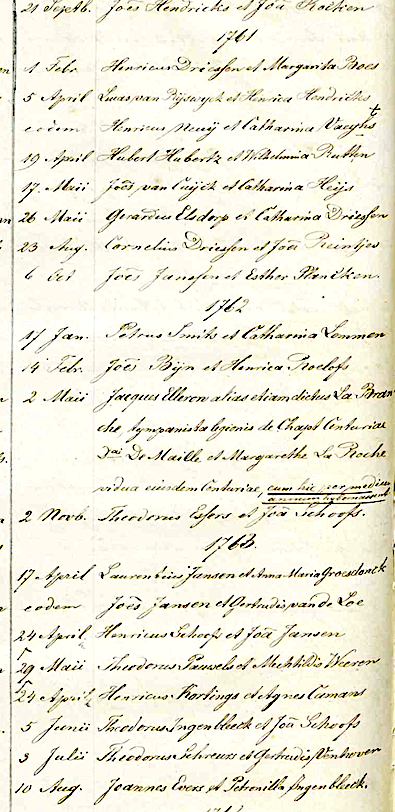 21 Septb. Joẽs Hendricks et Joã Koeken
1761
1 Febr. Henricus Driessen et Margarita Boes
5 April Lucas van Rijswyck et Henrica Hendricks
eodem Henricus Neuij et Catharina
19 April Hubert Hubertz et Wilhelmina Rutten
17. Maii Joẽs van Cuijck et Catharina Heijs
26 Maii Gerardus Elsdorp et Catharina Driessen
23 Aug. Cornelius Driessen et Joã Reintjes
6 Oct Joẽs Janssen et Esther Plancken
1762
17 Jan. Petrus Smits et Catharina Lemmen
14 Febr. Joẽs Bijn et Henrica Roelofs
2 Maii Jacques Elleren alias etiam dictus La Bran
che, tympanista legionis de Chapt Centuriae
Dai De Maille et Margarethe La Roche
vidua eiusdem Centuriae, cum hic per medium
annum hybernassent
2 Novb. Theodorus Essers et Joã Schoofs.
1763.
17 April Laurentius Jansen et Anna Maria Groesdonck
eodem Joẽs Jansen et Gertrudis van de Loe
24 April Henricus Schoofs et Joã Jansen
29 Maii Theodorus Pauwels et Mechtildis Weerens
24 April Henricus Kortings et Agnes Camans
5 Junii Theodorus Ingenbleeck et Joã Schoofs
3 Julii Theodorus Schreurs et Gertrudis Venhoven
10 Aug. Joannes Evers et Petronilla Ingenbleek.